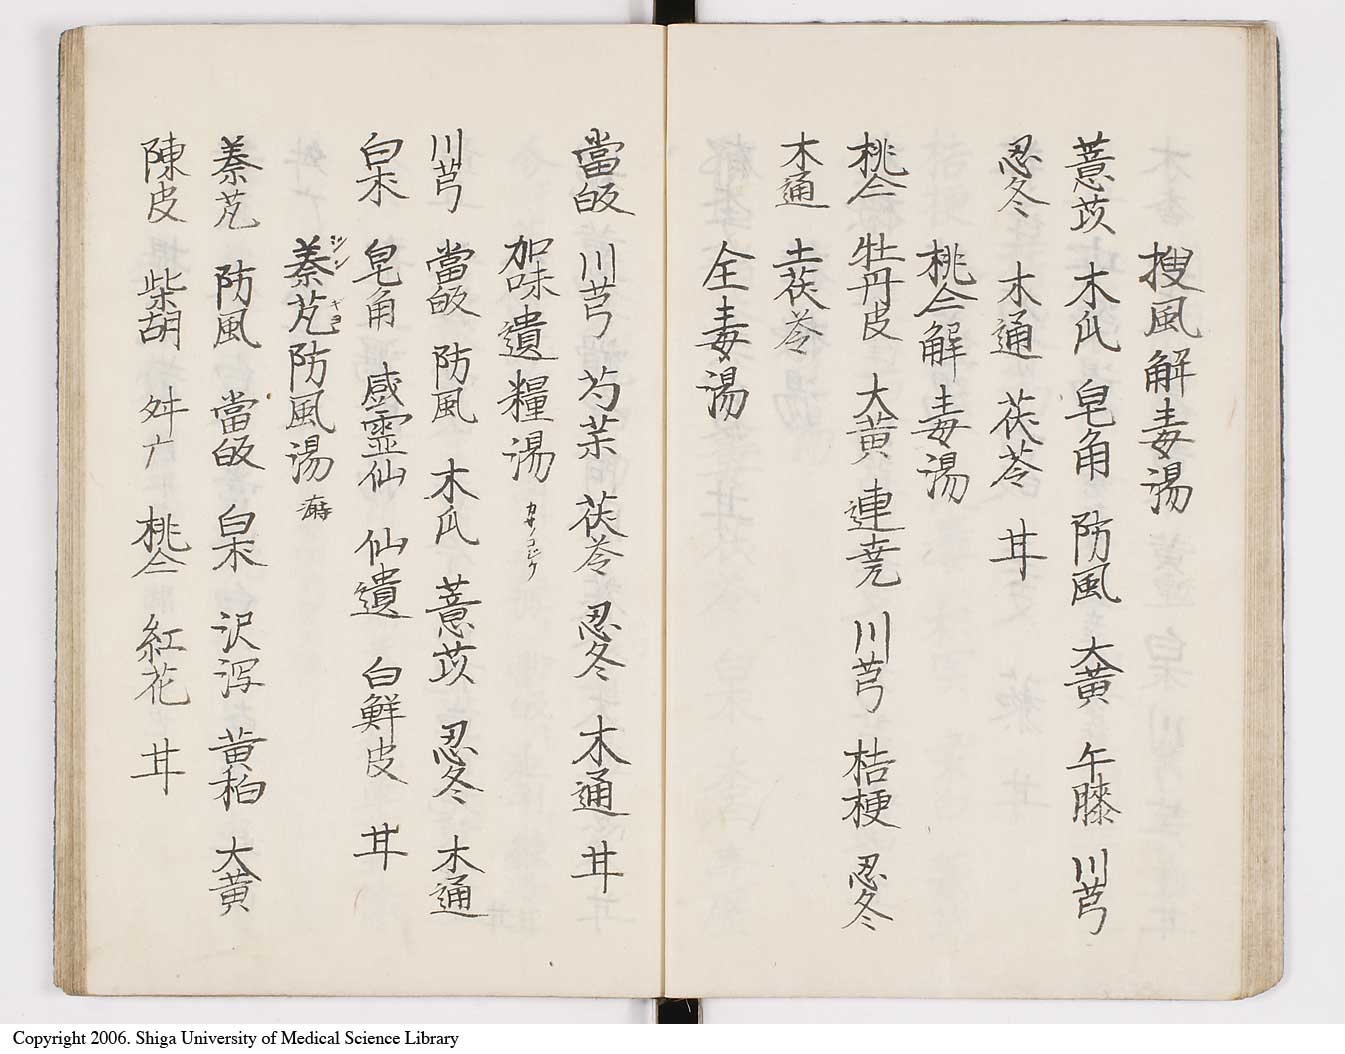 搜風解毒湯
薏苡 木瓜 皂角 防風 大黄 午膝 川芎
忍冬 木通 茯苓 甘
桃仁解毒湯
桃仁 牡丹皮 大黄 連尭 川芎 桔梗 忍冬
木通 土茯苓
全毒湯
當皈 川芎 芍薬 茯苓 忍冬 木通 甘
加味遺糧湯
川芎 當皈 防風 木瓜 薏苡 忍冬 木通
白朮 皂角 感霊仙 仙遺 白鮮皮 甘
秦芃防風湯
シン ギョウ
秦芃 防風 當皈 白朮 沢泻 黄柏 大黄
陳皮 柴胡 舛广 桃仁 紅花 甘
Copyright 2006. Shiga University of Medical Science Library